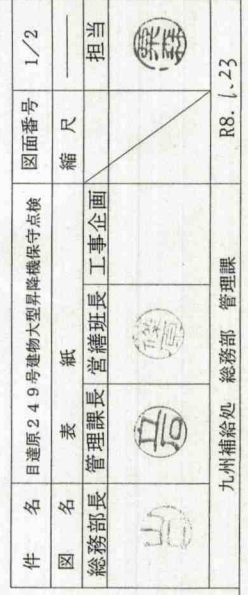 件名 目達原249号建物大型昇降機保守点検 図面番号 1/2
図名 表紙 縮尺 ―
総務部長 管理課長 営繕班長 工事企画 担当
九州補給処 総務部 管理課 R8.1.23